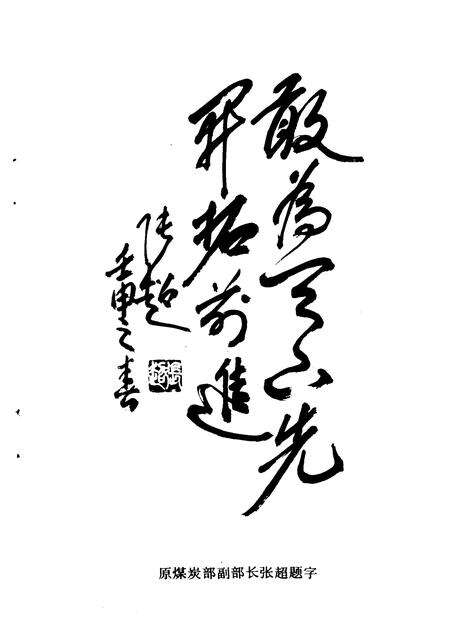 敢為天下先
開拓前進
张超
壬申之春
張超
原煤炭部副部长张超题字